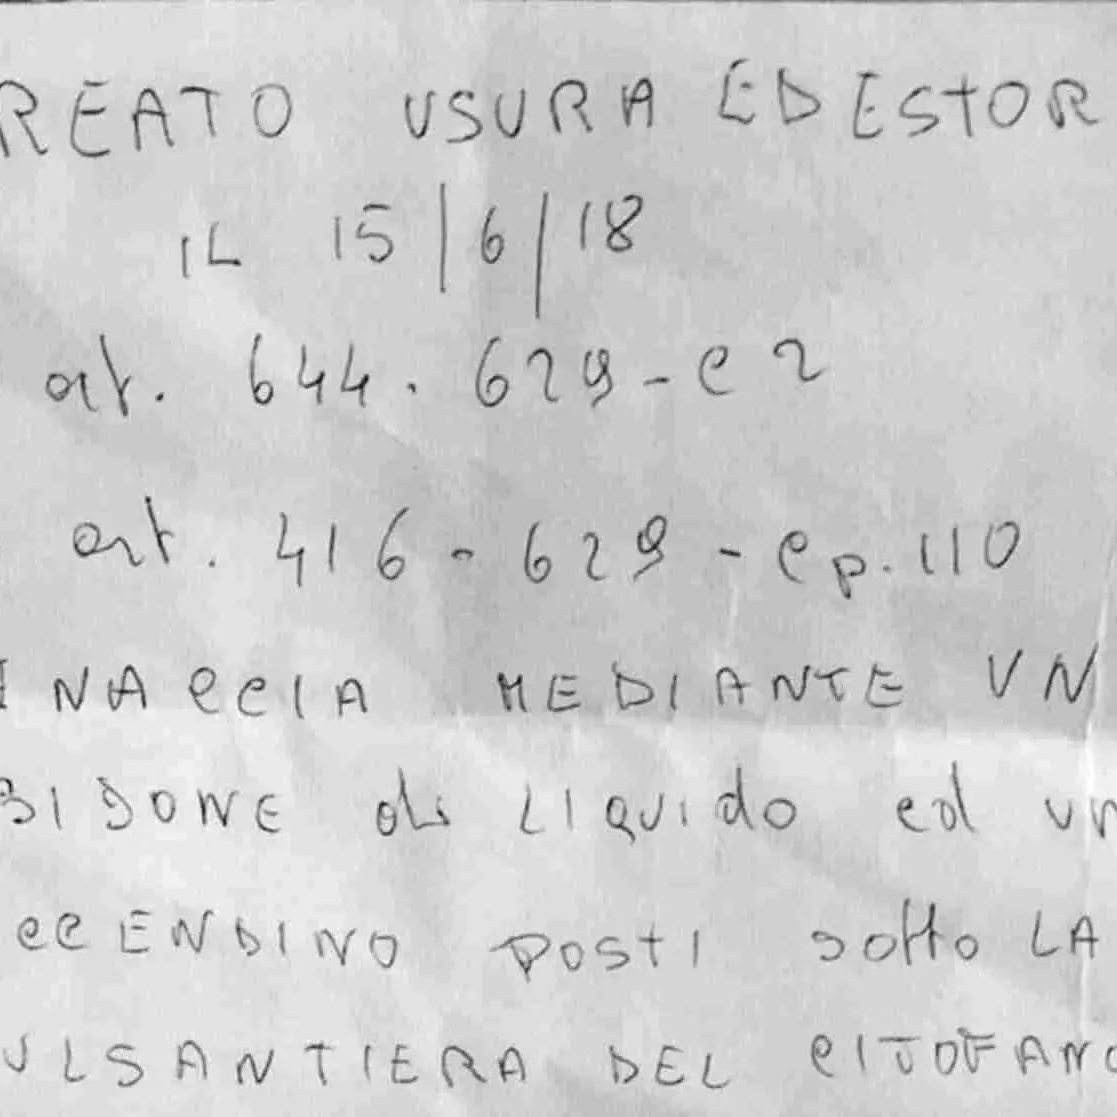 REATO USURA ED ESTOR
IL 15/6/18
art. 644. 629-e 2
art. 416-629-ep.110
INACCIA MEDIANTE UN
BIDONE di LIQUIdo ed un
CCENDINO POSTI sotto LA
ULSANTIERA DEL CITOFANO